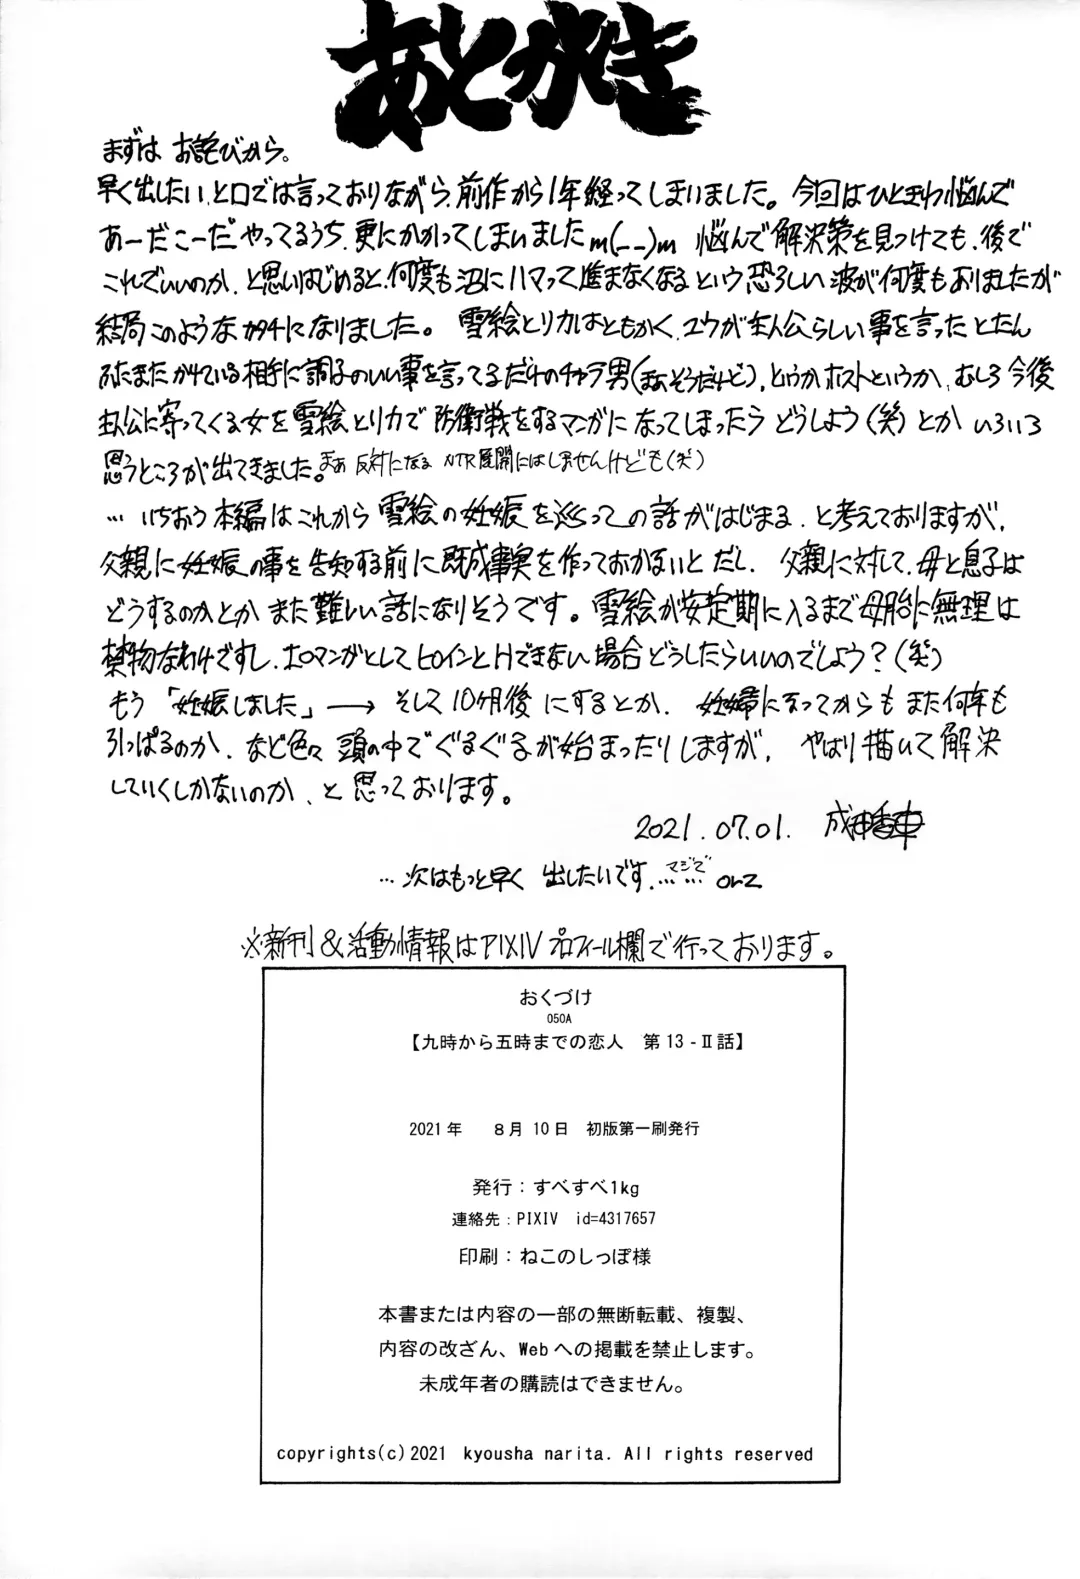 あとがき
まずは お詫びから。
早く出したい、と口では言っておりながら、前作から1年経ってしまいました。今回はひときわ悩んで
あーだこーだやってるうち、更にかかってしまいましたm(__)m 悩んで解決策を見つけても、後で
これでいいのか、と思いはじめると、何度も沼にハマって進まなくなるという恐ろしい波が何度もありましたが
結局このようなカタチになりました。 雪絵とリカはともかく、ユウが主人公らしい事を言ったとたん
ふたまたかけている相手に調子のいい事を言ってるだけのチャラ男(まぁそうだけど)、というかホストというか、むしろ今後
主人公に寄ってくる女を雪絵とリカで防衛戦をするマンガになってしまったらどうしよう(笑)とか いろいろ
思うところが出てきました。まぁ 反対になる NTR展開にはしませんけども(笑)
… いちおう本編はこれから雪絵の妊娠を巡っての話がはじまる、と考えておりますが、
父親に妊娠の事を告知する前に既成事実を作っておかないとだし、 父親に対して、母と息子は
どうするのかとかまた難しい話になりそうです。雪絵が安定期に入るまで母胎に無理は
禁物なわけですし、エロマンガとしてヒロインとHできない場合どうしたらいいのでしょう?(笑)
もう「妊娠しました」→ そして10ヶ月後 にするとか、 妊婦になってからもまた何年も
引っぱるのか、など色々 頭の中でぐるぐるが始まったりしますが、 やはり描いて解決
していくしかないのか、と 思っております。
2021.07.01. 成田香車
… 次はもっと早く 出したいです……マジで orz
※新刊&活動情報はPIXIVプロフィール欄で行っております。
おくづけ
050A
【九時から五時までの恋人 第13-Ⅱ話】
2021年 8月10日 初版第一刷発行
発行:すべすべ1kg
連絡先:PIXIV id=4317657
印刷:ねこのしっぽ様
本書または内容の一部の無断転載、複製、
内容の改ざん、Webへの掲載を禁止します。
未成年者の購読はできません。
copyrights(c)2021 kyousha narita. All rights reserved